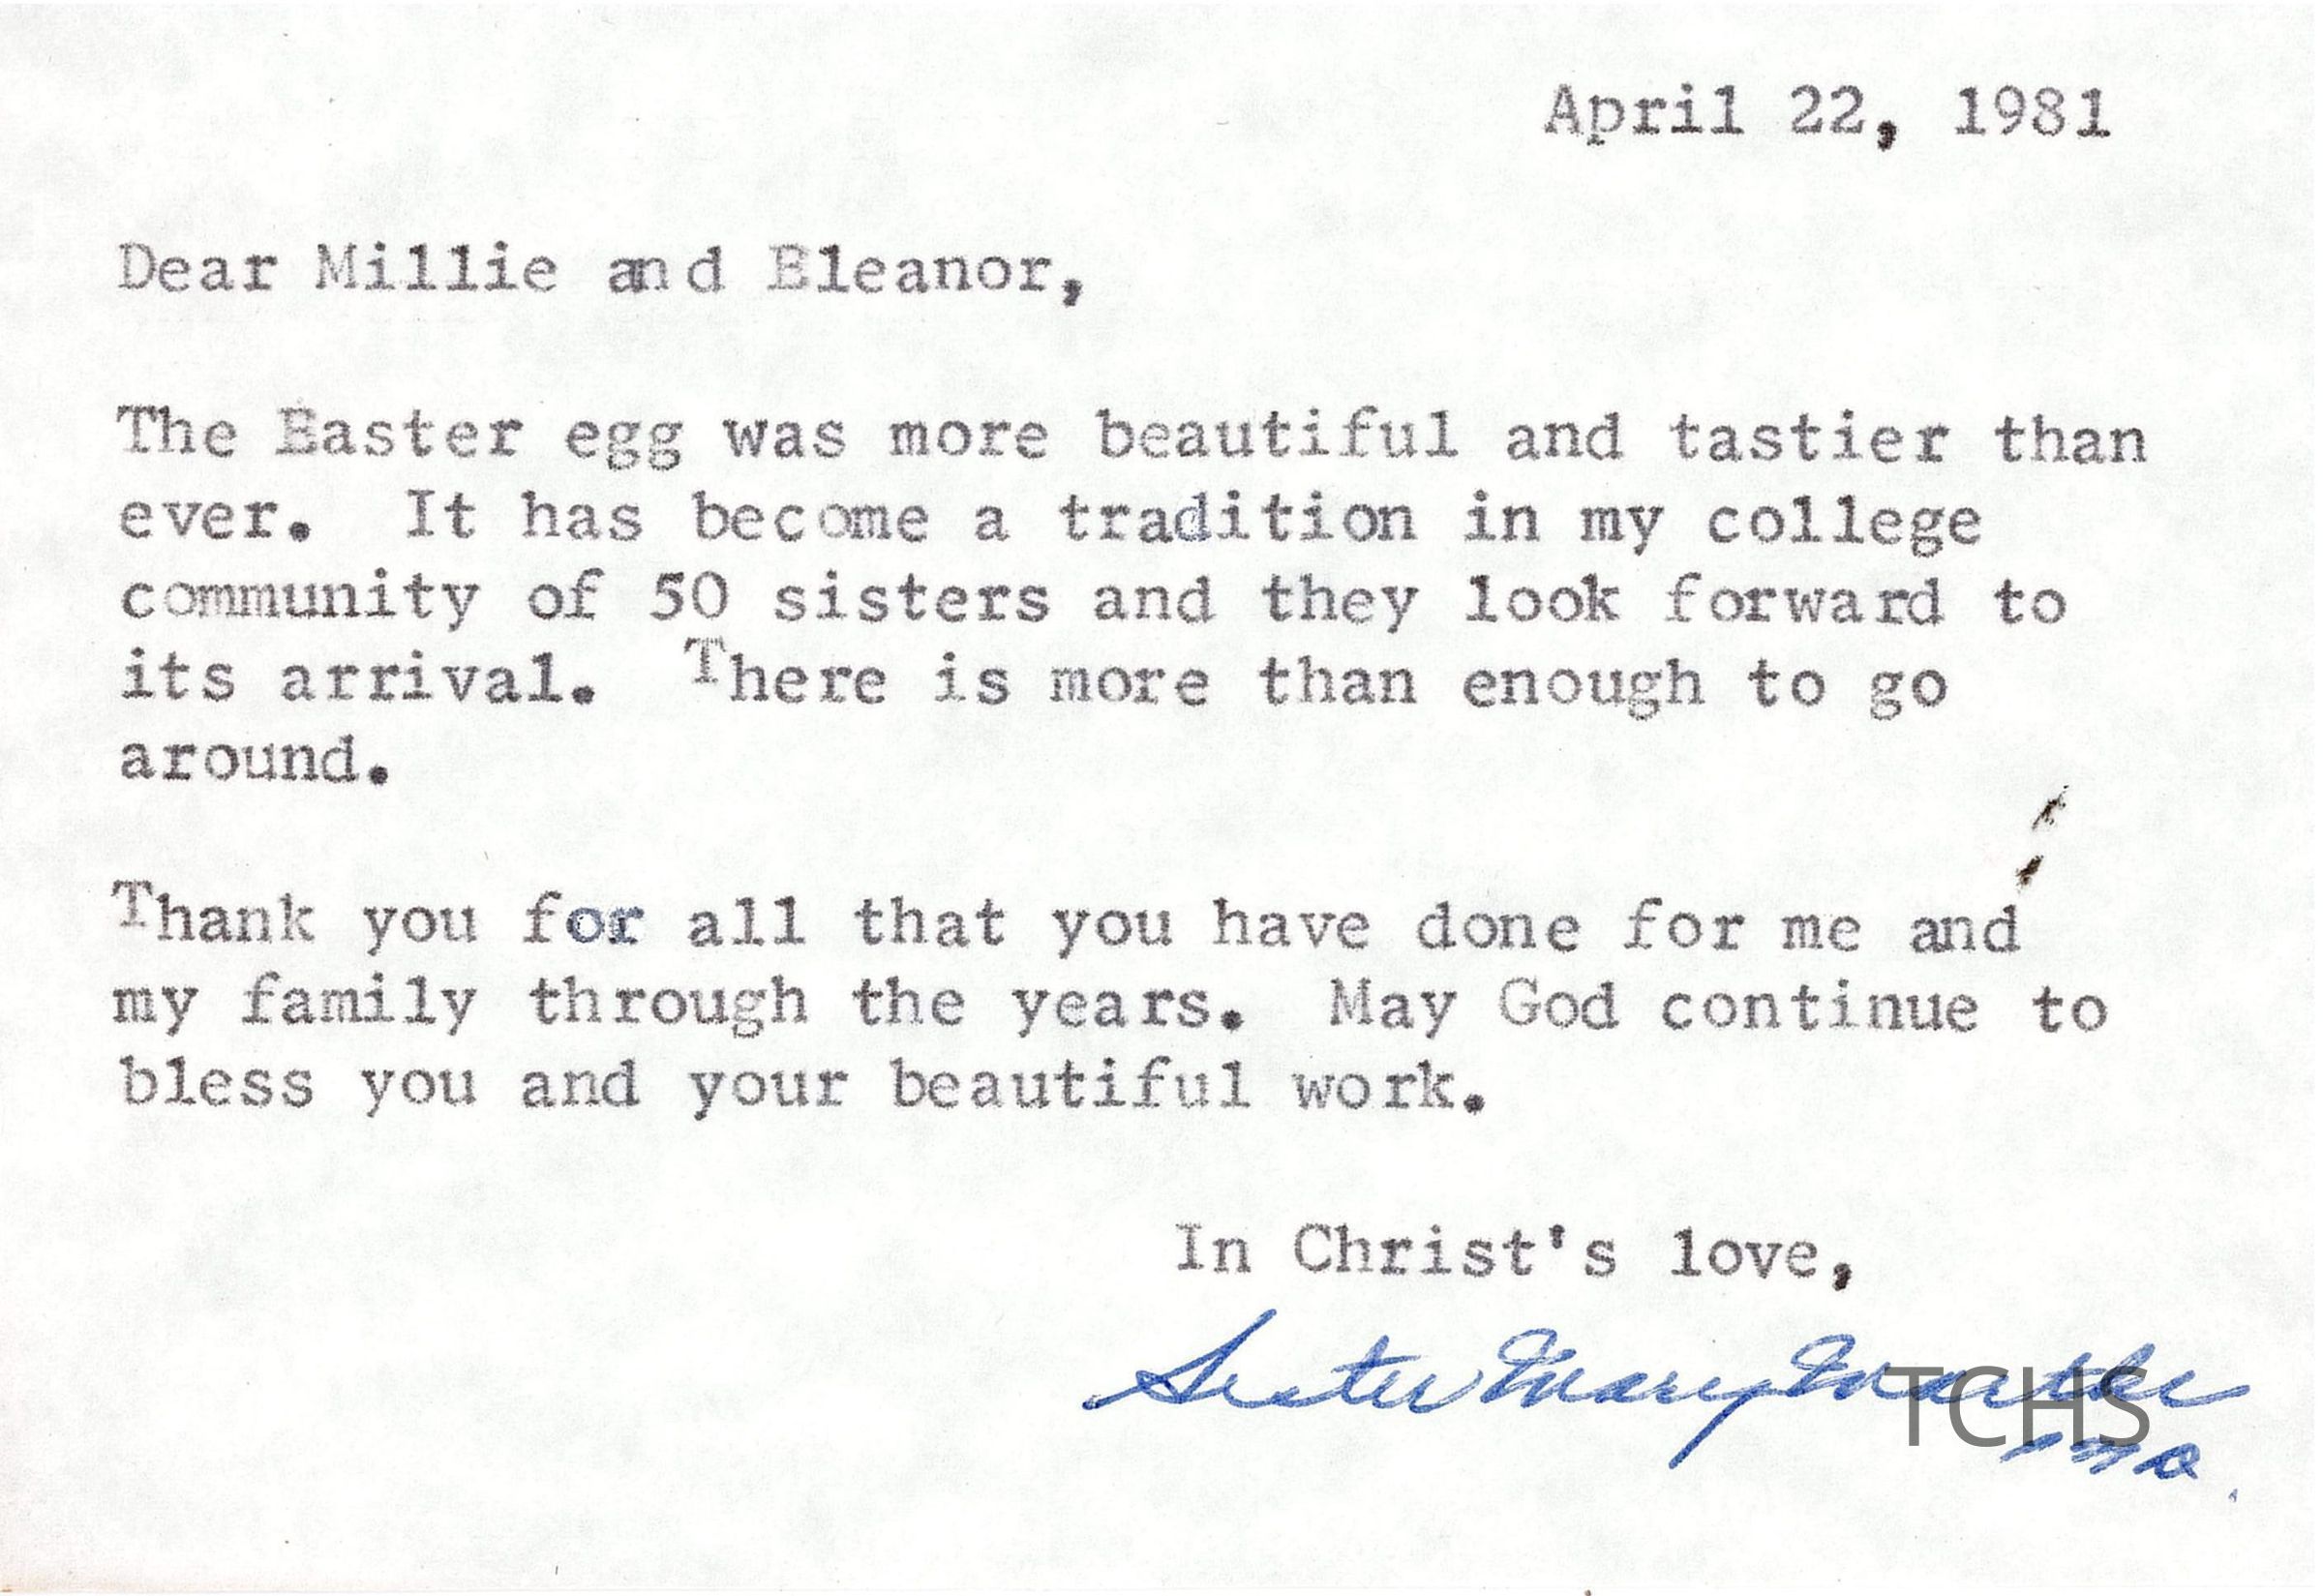 April 22, 1981
Dear Millie and Eleanor,
The Easter egg was more beautiful and tastier than
ever. It has become a tradition in my college
community of 50 sisters and they look forward to
its arrival. There is more than enough to go
around.
Thank you for all that you have done for me and
my family through the years. May God continue to
bless you and your beautiful work.
In Christ's love,
Sister Mary Martha
TCHS